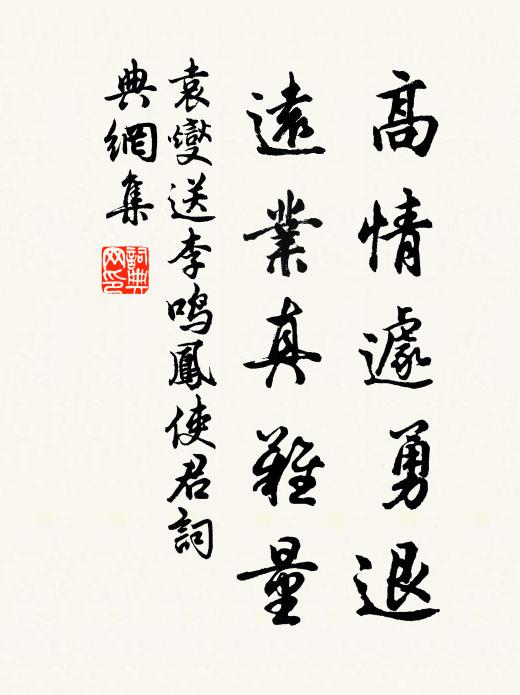 高情遽勇退
遠業真難量
袁燮送李鳴鳳使君詞
典網集
詞典
网印